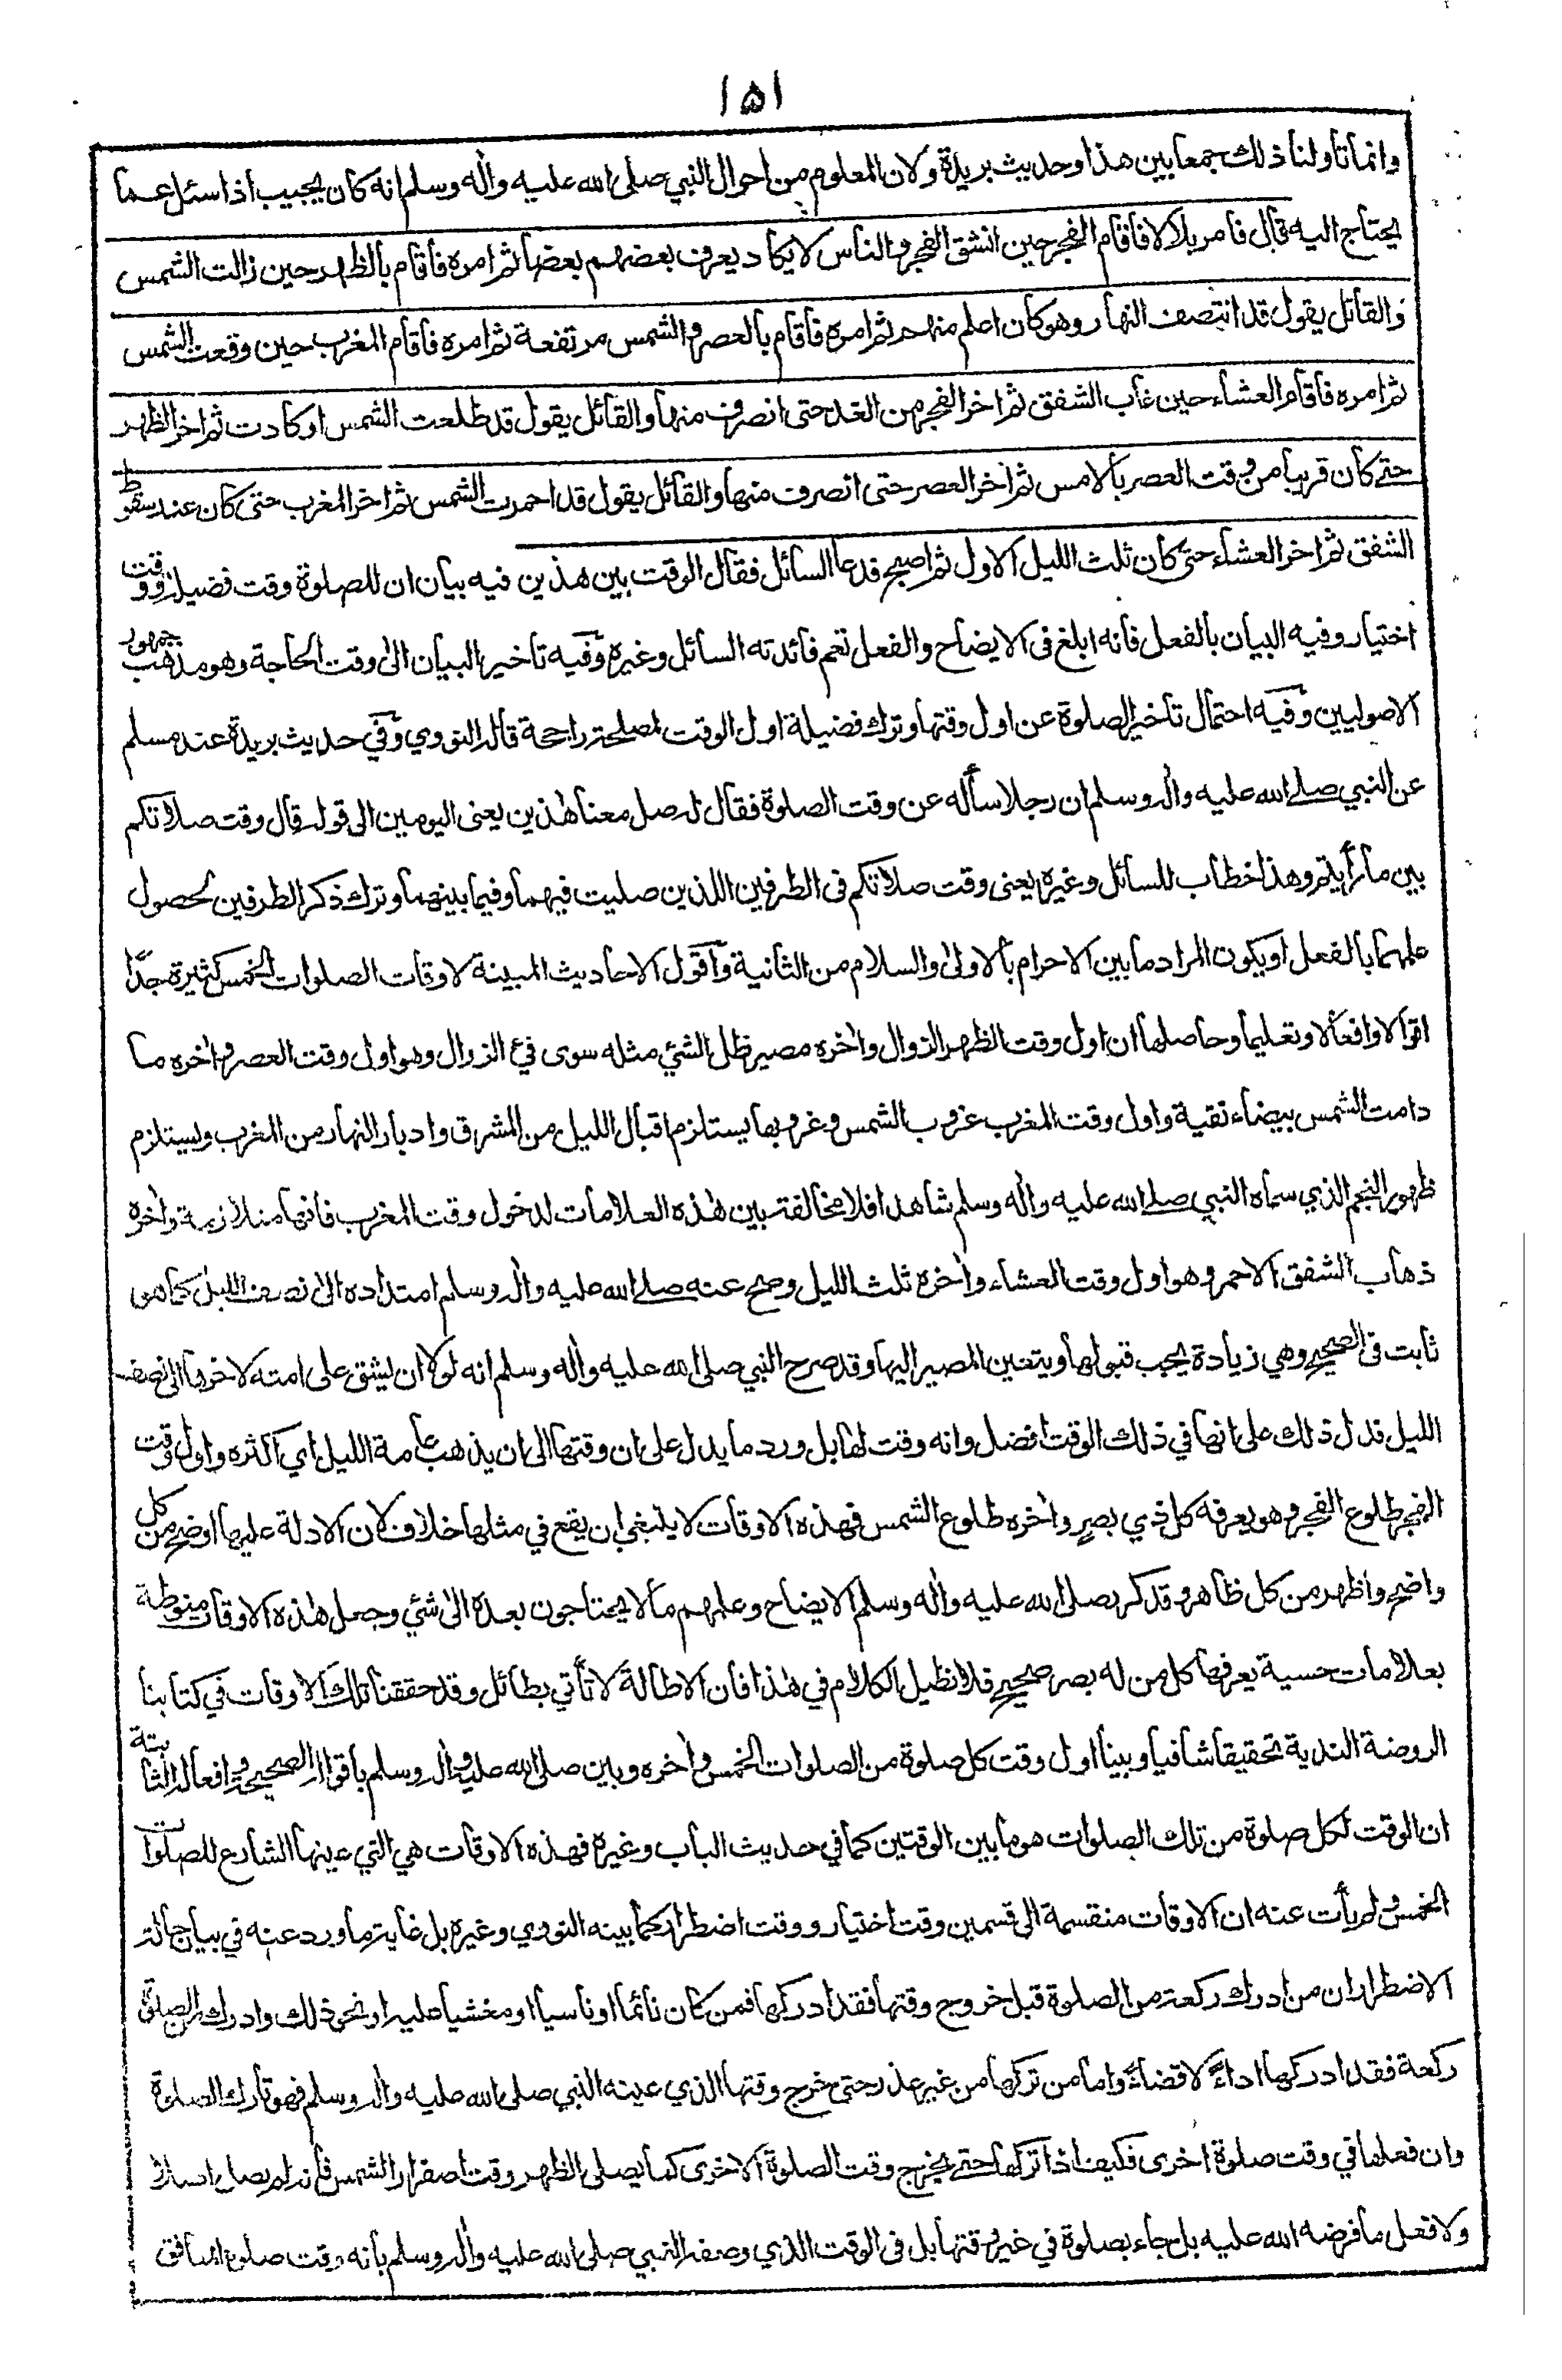 ١٥١
وانما تأولنا ذلك جمعا بين هذا وحديث بريدة ولان المعلوم من احوال النبي صلى الله عليه واٰله وسلم انه كان يجيب اذا سئل عما
يحتاج اليه قال فأمر بلالا فأقام الفجر حين انشق الفجر والناس لا يكاد يعرف بعضهم بعضا ثم امره فأقام بالظهر حين زالت الشمس
والقائل يقول قد انتصف النهار وهو كان اعلم منهم ثم امره فأقام بالعصر والشمس مرتفعة ثم امره فأقام المغرب حين وقعت الشمس
ثم امره فأقام العشاء حين غاب الشفق ثم اخر الفجر من الغد حتى انصرف منها والقائل يقول قد طلعت الشمس او كادت ثم اخر الظهر
حتے كان قريبا من وقت العصر بالامس ثم اخر العصر حتى انصرف منها والقائل يقول قد احمرت الشمس ثم اخر المغرب حتى كان عند سقوط
الشفق ثم اخر العشاء حتى كان ثلث الليل الاول ثم اصبح فدعا السائل فقال الوقت بين هذين فيه بيان ان للصلوة وقت فضيلة ووقت
اختيار وفيه البيان بالفعل فانه ابلغ فى الايضاح والفعل تعم فائدته السائل وغيره وفيه تاخير البيان الى وقت الحاجة وهو مذهب جمهور
الاصوليين وفيه احتمال تاخير الصلوة عن اول وقتها وترك فضيلة اول الوقت لمصلحة راجحة قاله النووي وفي حديث بريدة عند مسلم
عن النبي صلے الله عليه واٰله وسلم ان رجلا سأله عن وقت الصلوة فقال له صل معنا هٰذين يعنى اليومين الى قوله قال وقت صلاتكم
بين ما رأيتم وهذا خطاب للسائل وغيره يعنى وقت صلاتكم فى الطرفين اللذين صليت فيهما وفيما بينهما وترك ذكر الطرفين لحصول
علمهما بالفعل او يكون المراد ما بين الاحرام بالاولىٰ والسلام من الثانية وأقول الاحاديث المبينة لاوقات الصلوات الخمس كثيرة جدًا
اقوالا وافعالا وتعليما وحاصلها ان اول وقت الظهر الزوال واٰخره مصير ظل الشئ مثله سوى فيء الزوال وهو اول وقت العصر واٰخره ما
دامت الشمس بيضاء نقية واول وقت المغرب غروب الشمس وغروبها يستلزم اقبال الليل من المشرق وادبار النهار من المغرب ويستلزم
ظهور النجم الذي سماه النبي صلے الله عليه واٰله وسلم شاهدا فلا مخالفة بين هٰذه العلامات لدخول وقت المغرب فانها متلازمة واٰخره
ذهاب الشفق الاحمر وهو اول وقت العشاء واٰخره ثلث الليل وصح عنه صلے الله عليه واٰله وسلم امتداده الى نصف الليل كما هو
ثابت فى الصحيح وهي زيادة يجب قبولها ويتعين المصير اليها وقد صرح النبي صلى الله عليه واٰله وسلم انه لولا ان يشق على امته لاخرها الى نصف
الليل فدل ذلك على انها في ذلك الوقت افضل وانه وقت لها بل ورد ما يدل على ان وقتها الى ان يذهب عامة الليل اي اكثره واول وقت
الفجر طلوع الفجر وهو يعرفه كل ذي بصر واٰخره طلوع الشمس فهذه الاوقات لا ينبغي ان يقع في مثلها خلاف لان الادلة عليها اوضح من كل
واضح واظهر من كل ظاهر وقد كرر صلى الله عليه واٰله وسلم الايضاح وعلمهم ما لا يحتاجون بعده الى شئي وجعل هٰذه الاوقات منوطة
بعلامات حسية يعرفها كل من له بصر صحيح فلا نطيل الكلام في هٰذا فان الاطالة لا تأتي بطائل وقد حققنا تلك الاوقات في كتابنا
الروضة الندية تحقيقا شافيا وبينا اول وقت كل صلوة من الصلوات الخمس واٰخره وبين صلى الله عليه واٰله وسلم باقواله الصحيحة وافعاله الثابتة
ان الوقت لكل صلوة من تلك الصلوات هو ما بين الوقتين كما في حديث الباب وغيره فهذه الاوقات هي التي عينها الشارع للصلوات
الخمس ولم يأت عنه ان الاوقات منقسمة الى قسمين وقت اختيار ووقت اضطرار كما بينه النووي وغيره بل غاية ما ورد عنه في بيان حالة
الاضطرار ان من ادرك ركعة من الصلوة قبل خروج وقتها فقد ادركها فمن كان نائما او ناسيا او مغشيا عليه او نحو ذلك وادرك من الصلوة
ركعة فقد ادركها اداءً لا قضاءً واما من تركها من غير عذر حتى خرج وقتها الذي عينه النبي صلى الله عليه واٰله وسلم فهو تارك الصلوة
وان فعلها في وقت صلوة اخرى فكيف اذا تركها حتے يخرج وقت الصلوة الاخرى كما يصلى الظهر وقت اصفرار الشمس فانه لم يصل اصلا
ولا فعل ما فرضه الله عليه بل جاء بصلوة في غير وقتها بل فى الوقت الذي وصفه النبي صلى الله عليه واٰله وسلم بانه وقت صلوة المنافق